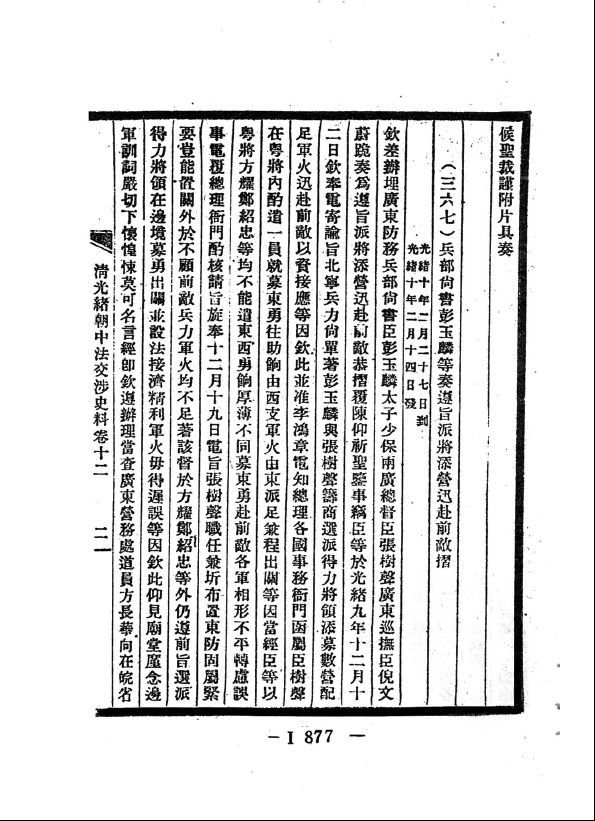 候聖裁謹附片具奏
（三六七）兵部尙書彭玉麟等奏遵旨派將添營迅赴前敵摺
光緒十年二月二十七日到
光緒十年二月十四日發
欽差辦理廣東防務兵部尙書臣彭玉麟太子少保兩廣總督臣張樹聲廣東巡撫臣倪文
蔚跪奏爲遵旨派將添營迅赴前敵恭摺覆陳仰祈聖鑒事竊臣等於光緒九年十二月十
二日欽奉電寄諭旨北寧兵力尙單著彭玉麟與張樹聲籌商選派得力將領添募數營配
足軍火迅赴前敵以資接應等因欽此並准李鴻章電知總理各國事務衙門函屬臣樹聲
在粵將內酌遣一員就募東勇往助餉由西支軍火由東派足兼程出關等因當經臣等以
粵將方耀鄭紹忠等均不能遣東西勇餉厚薄不同募東勇赴前敵各軍相形不平轉慮誤
事電覆總理衙門酌核請旨旋奉十二月十九日電旨張樹聲職任兼圻布置東防固屬緊
要豈能置關外於不顧前敵兵力軍火均不足著該督於方耀鄭紹忠等外仍遵前旨選派
得力將領在邊境募勇出關並設法接濟精利軍火毋得遲誤等因欽此仰見廟堂廑念邊
軍訓詞嚴切下懷惶悚莫可名言經卽欽遵辦理當查廣東營務處道員方長華向在皖省
淸光緒朝中法交涉史料卷十二
二一
— I 877 —